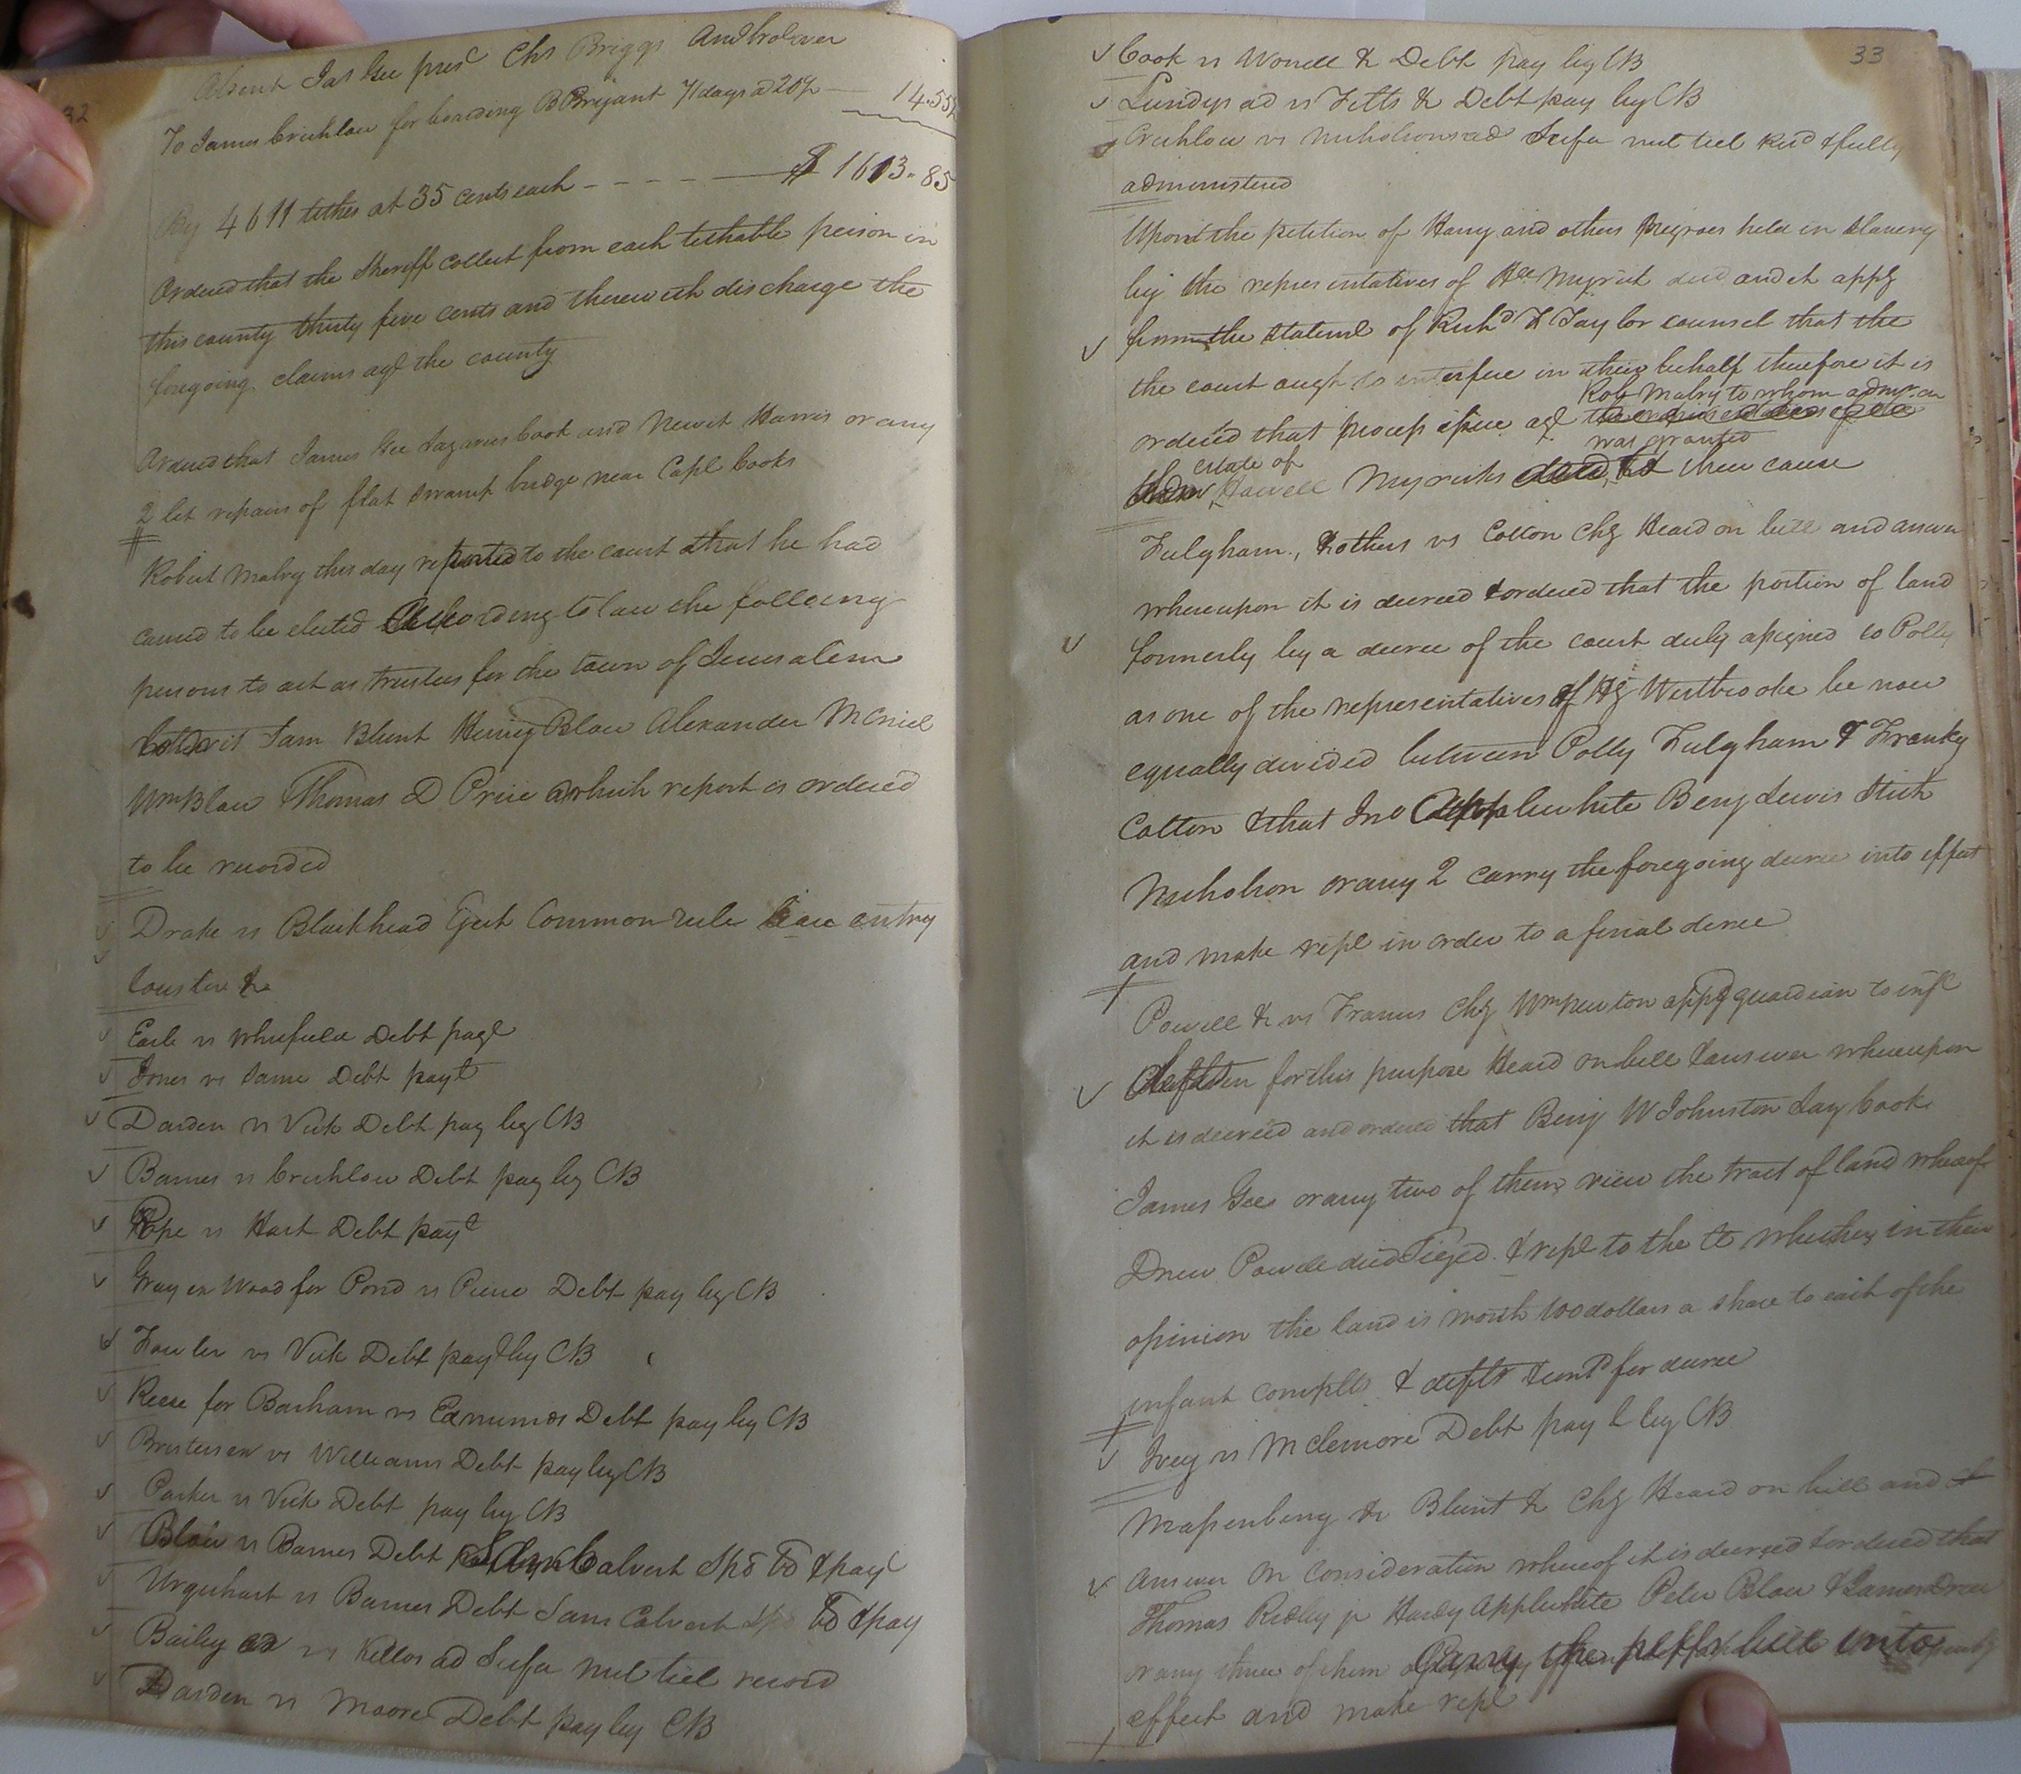 32
Absent Jas Gee pres^t Chs Briggs
To James Crichlow for boarding B Bryant 71 days a 20 — 14.55½
By 4611 tithes at 35 cents each — — — — $ 1613.85
Ordered that the Sheriff collect from each tithable person in
this county thirty five cents and therewith discharge the
foregoing claims agt the county
Ordered that James Gee Lazarus Cook and Newit Harris or any
2 let repairs of flat swamp bridge near Capt Cooks
Robert Mabry this day reported to the court that he had
caused to be elected according to law the following
persons to act as trustees for the town of Jerusalem
to wit Sam Blunt Henry Blow Alexander McNiel
Wm Blow Thomas D Price which report is ordered
to be recorded
Drake vs Blackhead Eject Common rule entry
Earle vs Whifield Debt payt
Jones vs Same Debt payt
Darden vs Vick Debt pay by CB
Barnes vs Crichlow Debt pay by CB
Pope vs Hart Debt payt
Gray ex Wood for Pond vs Debt pay by CB
Fowler vs Vick Debt payt by CB
Reese for Barham vs Edmunds Debt pay by CB
vs Williams Debt pay by CB
Parker vs Vick Debt pay by CB
Blow vs Barnes Debt Calvert & pay
Urquhart vs Barnes Debt Sam Calvert & pay
Bailey ad vs Kellos ad Scifa nul tiel record
Darden vs Moore Debt pay by CB
33
Cook vs Worrell &c Debt pay by CB
Lundys ad vs Fitts &c Debt pay by CB
Crichlow vs Nicholsons ad Scifa nul tiel & fully
administered
Upon the petition of Harry and others negroes held in slavery
by the representatives of Hll Myrick decd and it appg
from the statemt of Richd H Taylor counsel that the
the court ought to interfere in their behalf therefore it is
Robt Mabry to whom admr. on
ordered that process issue agt
was granted
estate of
Howell Myricks shew cause
Fulgham & others vs Cotton Chy Heard on bill and answer
whereupon it is decreed & ordered that the portion of land
formerly by a decree of the court duly assigned to Polly
as one of the representatives of Hy Westbrooke be now
equally divided between Polly Fulgham & Franky
Cotton & that Jno Applewhite Benj Lewis Stith
Nicholson or any 2 carry the foregoing decree into effect
and make rept in order to a final decree
Powell &c vs Francis Chy Wm Newton appd guardian to inft
for this purpose Heard on bill & answer whereupon
it is decreed and ordered that Benj W Johnston Lay Cook
James Gee or any two of them view the tract of land whereof
Drew Powell died Siezed & rept to the Ct whether in their
opinion the land is worth 100 dollars a share to each of the
infant complts & defts & contd for decree
Ivey vs McLemore Debt pay by CB
Massenberg &c Blunt &c Chy Heard on bill and
answer On Consideration whereof it is decreed & ordered that
Thomas Ridley jr Hardy Applewhite Peter Blow & James Drew
or any three of them Carry the bill into
effect and make rept